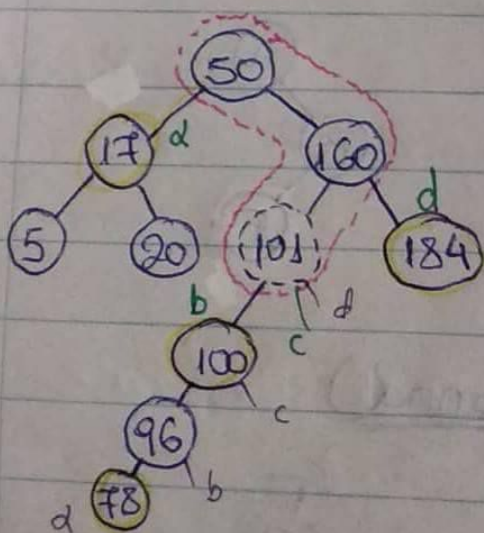 50
17 d 160
d
5 20 101 184
d
b c
100
c
96
b
78
d